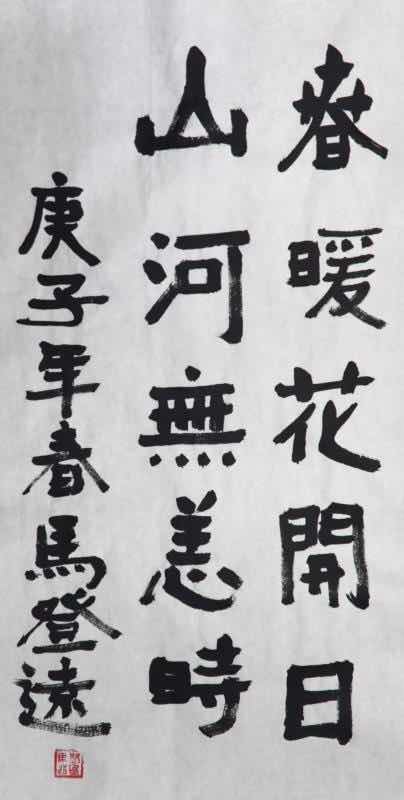 春暖花開日
山河無恙時
庚子年春馬登遠